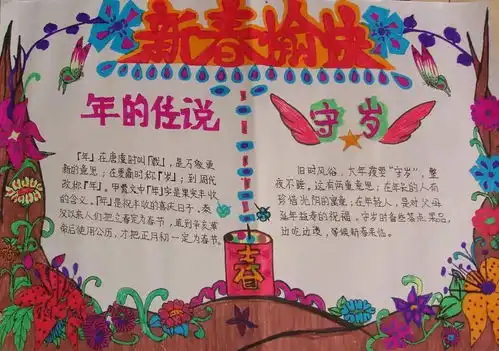 新春愉快
年的传说
「年」在唐虞时叫「载」，是万象更
新的意思；在夏商时称「岁」；到周代
改称「年」。甲骨文中「年」字是果实丰收
的含义。「年」是祝丰收的喜庆日子。秦
汉以来人们把立春定为春节，直到辛亥革
命后使用公历，才把正月初一定为春节。
守岁
旧时风俗，大年夜要“守岁”，整
夜不睡，这有两重意思；在年长的人有
珍惜光阴的寓意；在年轻人，是对父母
延年益寿的祝福。守岁时备些茶点果品，
边吃边谈，等候新春来临。
春